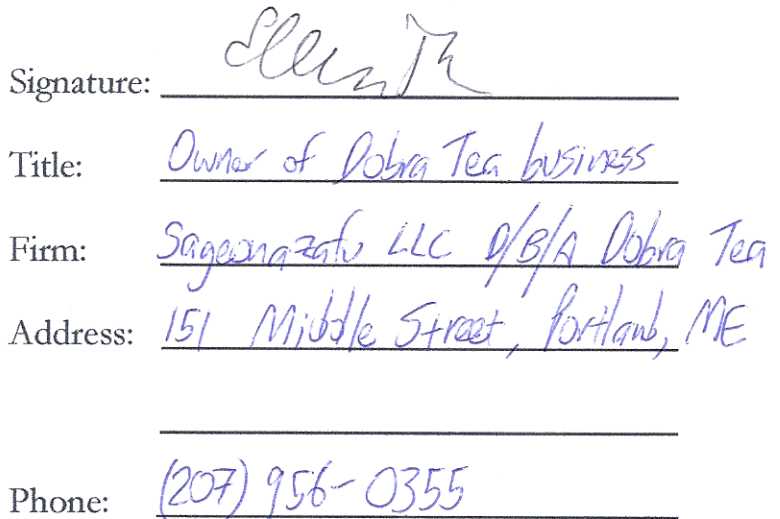 Signature:
Title: Owner of Dobra Tea business
Firm: Sageonazafu LLC D/B/A Dobra Tea
Address: 151 Middle Street, Portland, ME
Phone: (207) 956-0355